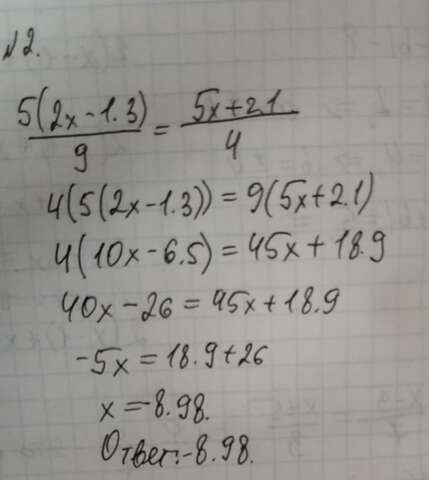 №2.
5(2x-1.3)/9 = 5x+2.1/4
4(5(2x-1.3)) = 9(5x+2.1)
4(10x-6.5) = 45x+18.9
40x-26 = 45x+18.9
-5x = 18.9+26
x=-8.98.
Ответ:-8.98.